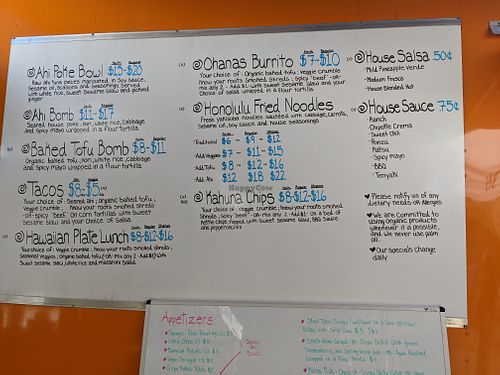 Ahi Poke Bowl $15-$20
Raw ahi tuna pieces marinated in soy sauce,
sesame oil, scallions and seasonings served
with white rice, sweet sesame slaw and pickled
ginger
Ahi Bomb $11-$17
Seared ahi poke, nori, white rice, cabbage
and spicy mayo wrapped in a flour tortilla
(v) Baked Tofu Bomb $8-$11
Organic baked tofu, nori, white rice, cabbage
and spicy mayo wrapped in a flour tortilla
Tacos $8-$5
Your choice of: Seared ahi; organic baked tofu;
veggie crumble; know your roots smoked shreds
-or- spicy "beef" on corn tortillas with sweet
sesame slaw and your choice of salsa
Hawaiian Plate Lunch $8-$12-$16
Your choice of: Veggie crumble; know your roots smoked shreds;
seasonal veggies; organic baked tofu -or- mix any 2 - Add $1 with
sweet sesame slaw, white rice and macaroni salad
(v) Ohanas Burrito $7-$10
Your choice of: Organic baked tofu; veggie crumble
know your roots smoked shreds; spicy "beef" -or-
mix any 2 - Add $1 with sweet sesame slaw and your
choice of salsa wrapped in a flour tortilla
(v) Honolulu Fried Noodles
Fresh yakisoba noodles sautéed with cabbage, carrots,
sesame oil, soy sauce and house seasonings
Traditional $6 - $9 - $12
Add Veggies $7 - $11 - $15
Add Tofu $8 - $12 - $16
Add Ahi $12 $18 $22
(v) Kahuna Chips $8-$12-$16
Your choice of: veggie crumble; know your roots smoked
shreds; spicy "beef" -or- mix any 2 - Add $1 on a bed of
kettle chips topped with sweet sesame slaw, BBQ sauce
and pepperoncinis
House Salsa 50¢
- Mild Pineapple Verde
- Medium Fresca
- House Blended Hot
House Sauce 75¢
- Ranch
- Chipotle Crema
- Sweet Chili
- Ponzu
- Katsu
- Spicy mayo
- BBQ
- Teriyaki
♥ Please notify us of any
dietary needs or allergies
♥ We are committed to
using organic products
whenever it is possible,
and we never use palm
oil.
♥ Our specials change
daily
HappyCow
Appetizers